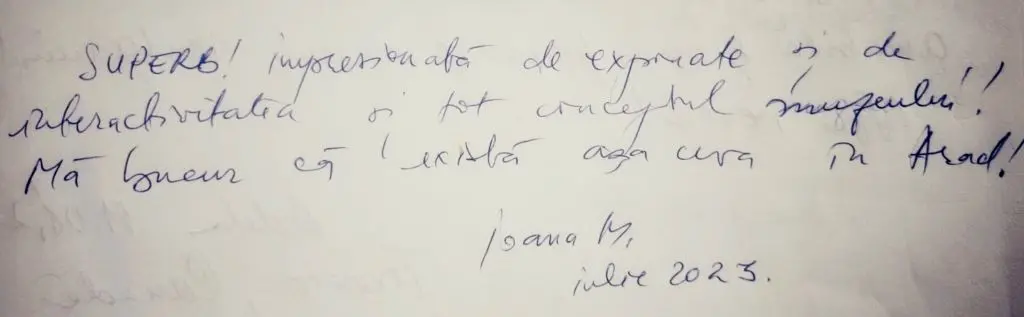 SUPERB! impresionată de exponate și de
interactivitatea și tot conceptul muzeului!!
Mă bucur că există așa ceva în Arad!
Ioana M.
iulie 2023.